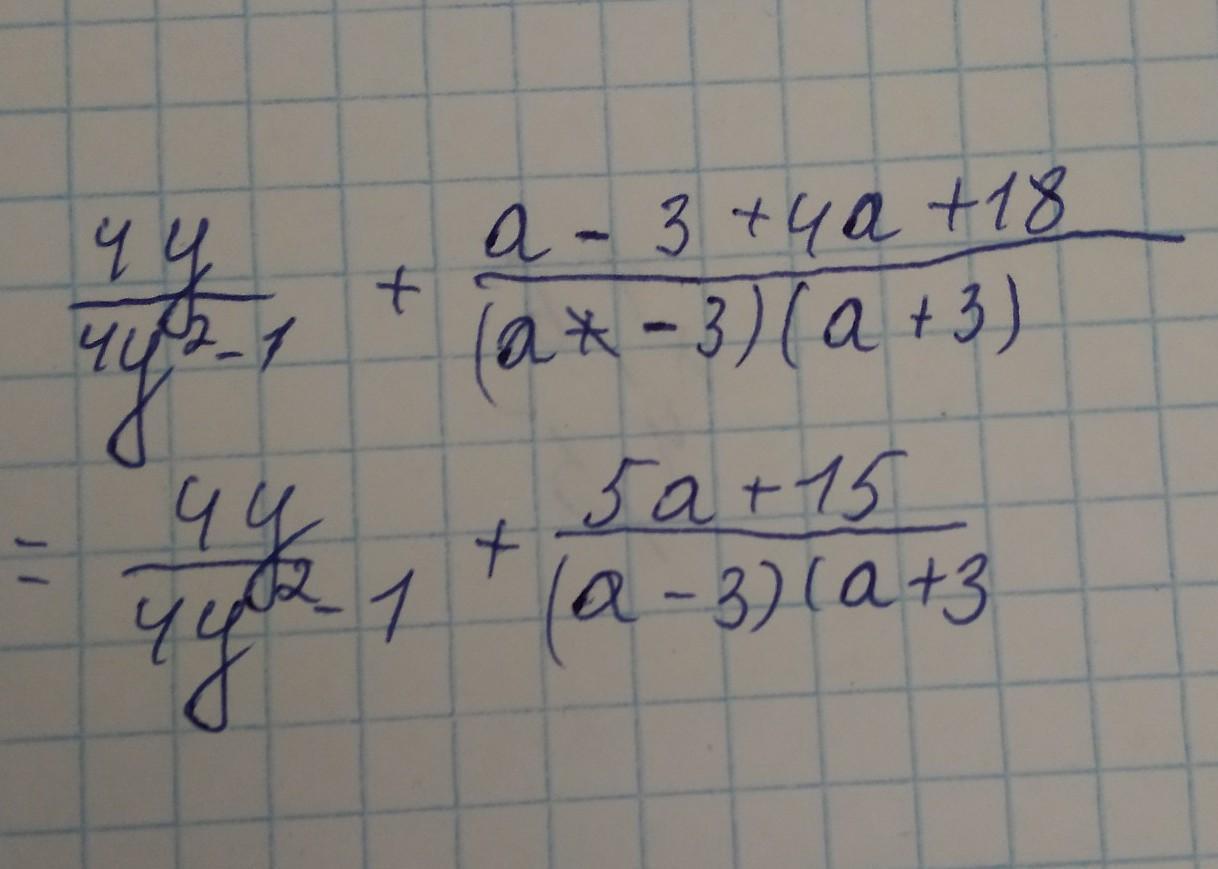 4y/(4y²-1) + (a - 3 + 4a + 18)/((a - 3)(a + 3))
= 4y/(4y²-1) + (5a + 15)/((a - 3)(a + 3